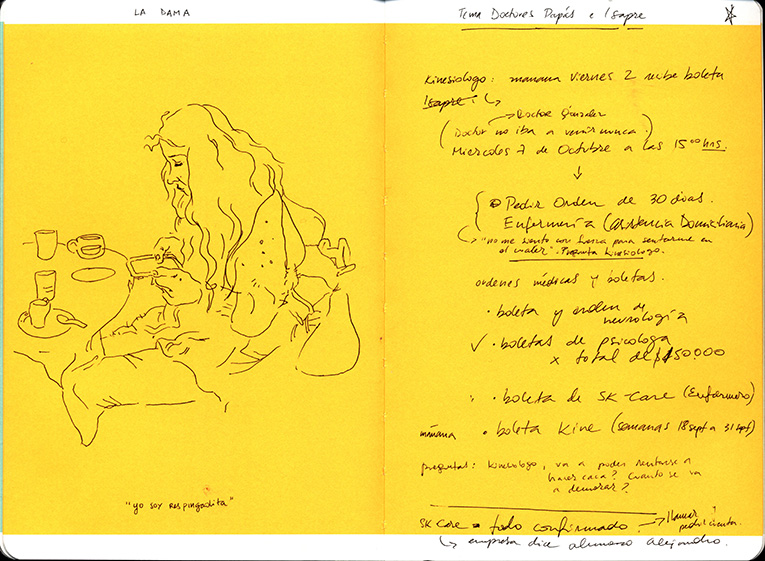 LA DAMA
"yo soy respingadita"
Tema Doctores Papás e Isapre
Kinesiologo: mañana viernes 2 recibe boleta
Isapre:
Doctor Gonzalez
(Doctor no iba a venir nunca.)
Miercoles 7 de Octubre a las 15⁰⁰ hrs.
Pedir Orden de 30 dias.
Enfermería (asistencia Domiciliaria)
"no me siento con fuerza para sentarme en
el water". Pregunta kinesiologo.
ordenes médicas y boletas.
· boleta y orden de
neurología
✓ · boletas de psicologa
x total de $150.000
· boleta de SK-Care (Enfermero)
mañana · boleta Kine (semanas 18 sept a 31 sept)
preguntas: kinesiologo, va a poder sentarse a
hacer caca? Cuanto se va
a demorar?
SK Care = todo confirmado. → llamar
pedir cuenta.
empresa dice alumno Alejandro.